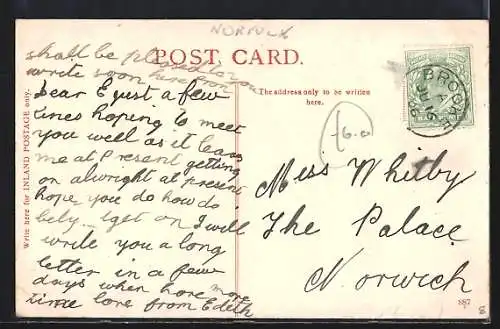 NORFOLK
shall be pleased to
write soon here from you
POST CARD.
Dear E just a few
lines hoping to meet
you well as it leavs
me at Present getting
on alwright at present
hope you do how do
bely... Iget on I will
write you a long
letter in a few
days when hore more
time love from Edith
Write here for INLAND POSTAGE only.
The address only to be written
here.
£6.0
BROOKE
A
JU 16
Miss Whitby
The Palace
Norwich
887
8